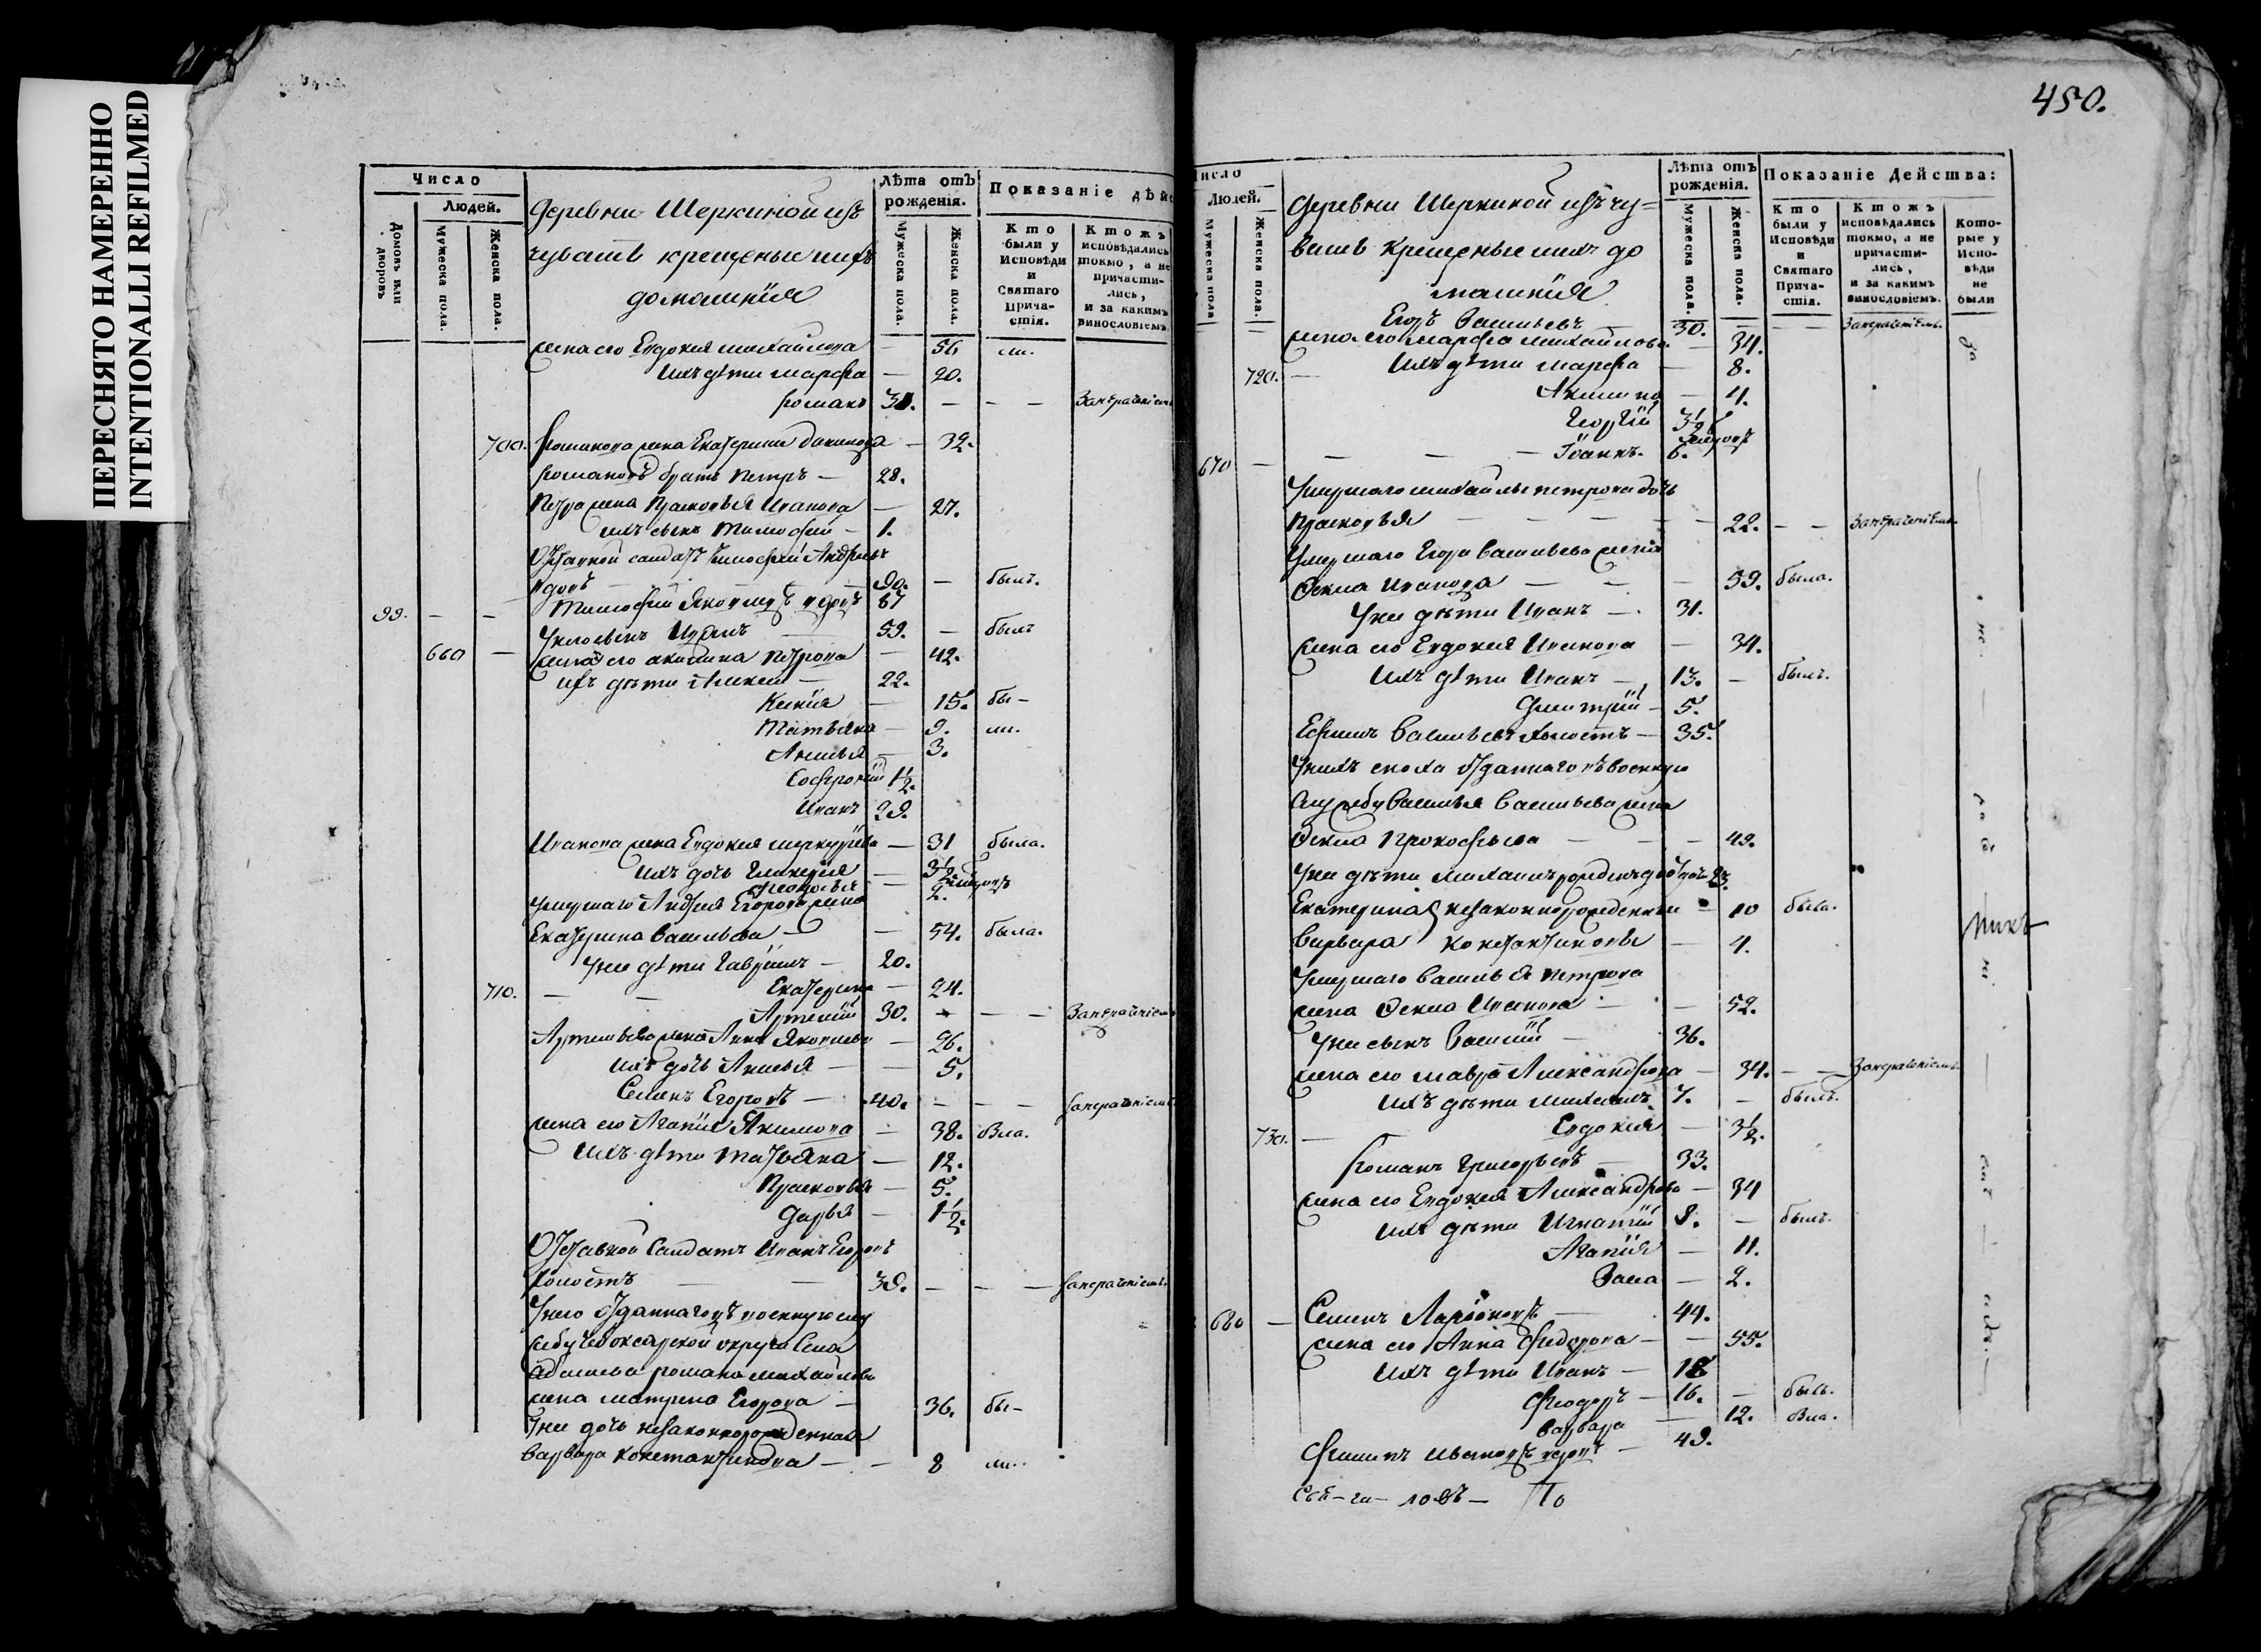 ПЕРЕСНЯТО НАМЕРЕННО
INTENTIONALLI REFILMED
Число
Людей.
Домовъ или дворовъ
Мужеска пола.
Женска пола.
Деревни Шеркиной изъ
чувашъ крещеные ихъ
домашнія
Лѣта отъ рожденія.
Мужеска пола.
Женска пола.
Показаніе дѣй
Кто были у Исповѣди и Святаго Причастія.
Ктожъ исповѣдались токмо, а не причастились, и за какимъ винословіемъ.
жена его Евдокия Михайлова — 56 ли.
Ихъ дѣти Марфа — 20.
Романъ 31. — — —
700. Романова жена Екатерина — 32.
Романовъ братъ Петръ — 28.
Петра жена Прасковья Иванова — 27.
ихъ сынъ Тимофей — 1.
Отставной солдатъ Тимофей
вдовъ — 90. — былъ.
99. — — Тимофей Яковлевъ вдовъ 67
У него сынъ — 59. — былъ
660 — жена его Акилина Петрова — 42.
ихъ дѣти Алексей — 22.
Ксения — 15. бы-
Татьяна — 9. ли.
Анисья — 3.
Софроній 1 1/2.
Иванъ 29.
Иванова жена Евдокия Меркурьева — 31 была.
ихъ дочь Гликерія — 3 1/2.
— 2.
Умершаго Андрея Егорова жена
Екатерина Васильева — 54. была.
У нее дѣти Гавріилъ — 20.
710. — — Екатерина — 24.
Артемій 30. — — —
Артемьева жена Анна Яковлева — 26.
ихъ дочь Анисья — 5.
Семенъ Егоровъ — 40. — — —
жена его Агапія Якимова — 38. бы-ла.
Ихъ дѣти Татьяна — 12.
Прасковья — 5.
Дарья — 1 1/2.
Отставной Солдатъ Иванъ Егоровъ
холостъ — — 39. — — —
У него отданнаго въ военную слу
жбу Чебоксарской округи Села
Романа Михайлова
жена Матрена Егорова — 36. бы-
У нее дочь незаконнорожденная
Варвара Константинова — — 8 ла.
450.
Число
Людей.
Мужеска пола
Женска пола.
Деревни Шеркиной изъ чу=
вашъ крещеные ихъ до
машнія
Лѣта отъ рожденія.
Мужеска пола.
Женска пола.
Показаніе Действа:
Кто были у Исповѣди и Святаго Причастія.
Ктожъ исповѣдались токмо, а не причастились, и за какимъ винословіемъ.
Которые у Исповѣди не были
Егоръ Васильевъ — 30. — — —
жена его Марфа Михайлова — 34.
720. — Ихъ дѣти Марфа — 8.
Акилина — 4.
Георгій 3 1/2
670 — — — — Іоаннъ. 6.
Умершаго Михайлы Петрова дочь
Прасковья — — — — 22. — —
Умершаго Егора Васильева жена
Фекла Иванова — — — 59. была.
У нее дѣти Иванъ — 31.
жена его Евдокия Иванова — 34.
Ихъ дѣти Иванъ — 13. — былъ.
Дмитрій — 5.
Ефимъ Васильевъ холостъ — 35.
У нихъ сноха отданнаго въ военную
службу Василья Васильева жена
Фекла Прокофьева — — — 49.
Екатерина незаконнорожденныя — 10 была.
Варвара Константиновы — 4.
Умершаго Василья Петрова
жена Фекла Иванова — — 52.
У нее сынъ Василій — 36.
жена его Мавра Александрова — 34. — —
Ихъ дѣти Михаилъ. 7. — былъ.
730. — Евдокия — 3 1/2.
Романъ Григорьевъ — 33.
жена его Евдокея Александрова — 34
ихъ дѣти Игнатій 8. — былъ.
Агапія — 11.
— 2.
680 — Семенъ Ларіоновъ — 44.
жена его Анна Федорова — — 55.
Ихъ дѣти Иванъ — 18
Феодоръ — 16. — былъ.
Варвара — 12. бы-ла.
Филипъ Ивановъ вдовъ — 49.